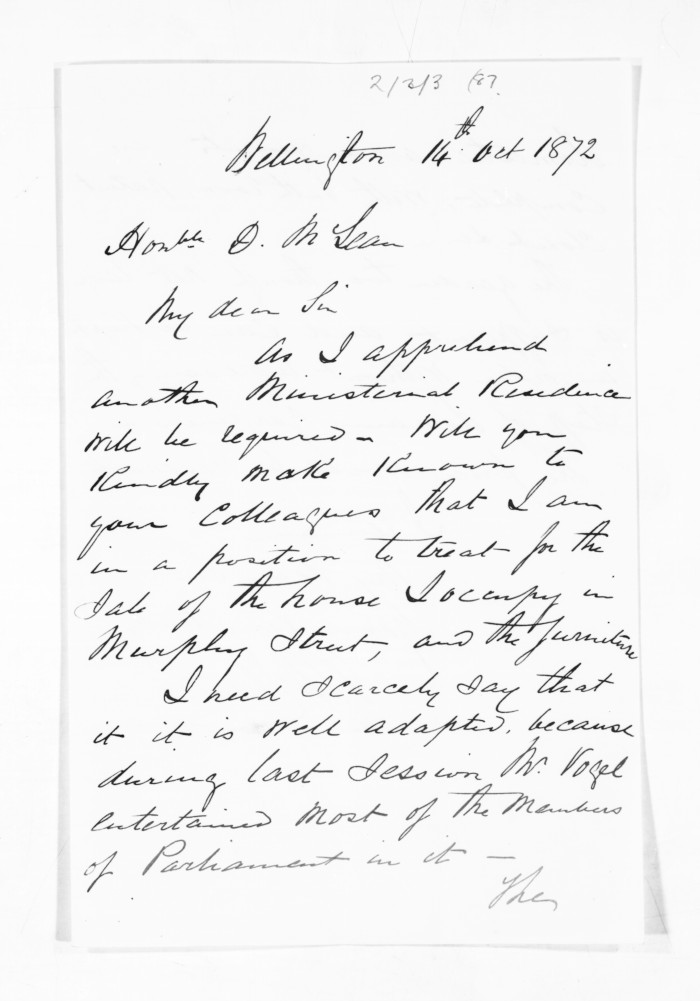 2/2/3 (87)
Wellington 14th Oct 1872
Honble D. McLean
My dear Sir
As I apprehend
another Ministerial Residence
will be required – Will you
Kindly make Known to
your Colleagues that I am
in a position to treat for the
Sale of the house I occupy in
Murphy Street, and the furniture
I need scarcely say that
it it is well adapted, because
during last Session Mr. Vogel
entertained most of the Members
of Parliament in it –
The